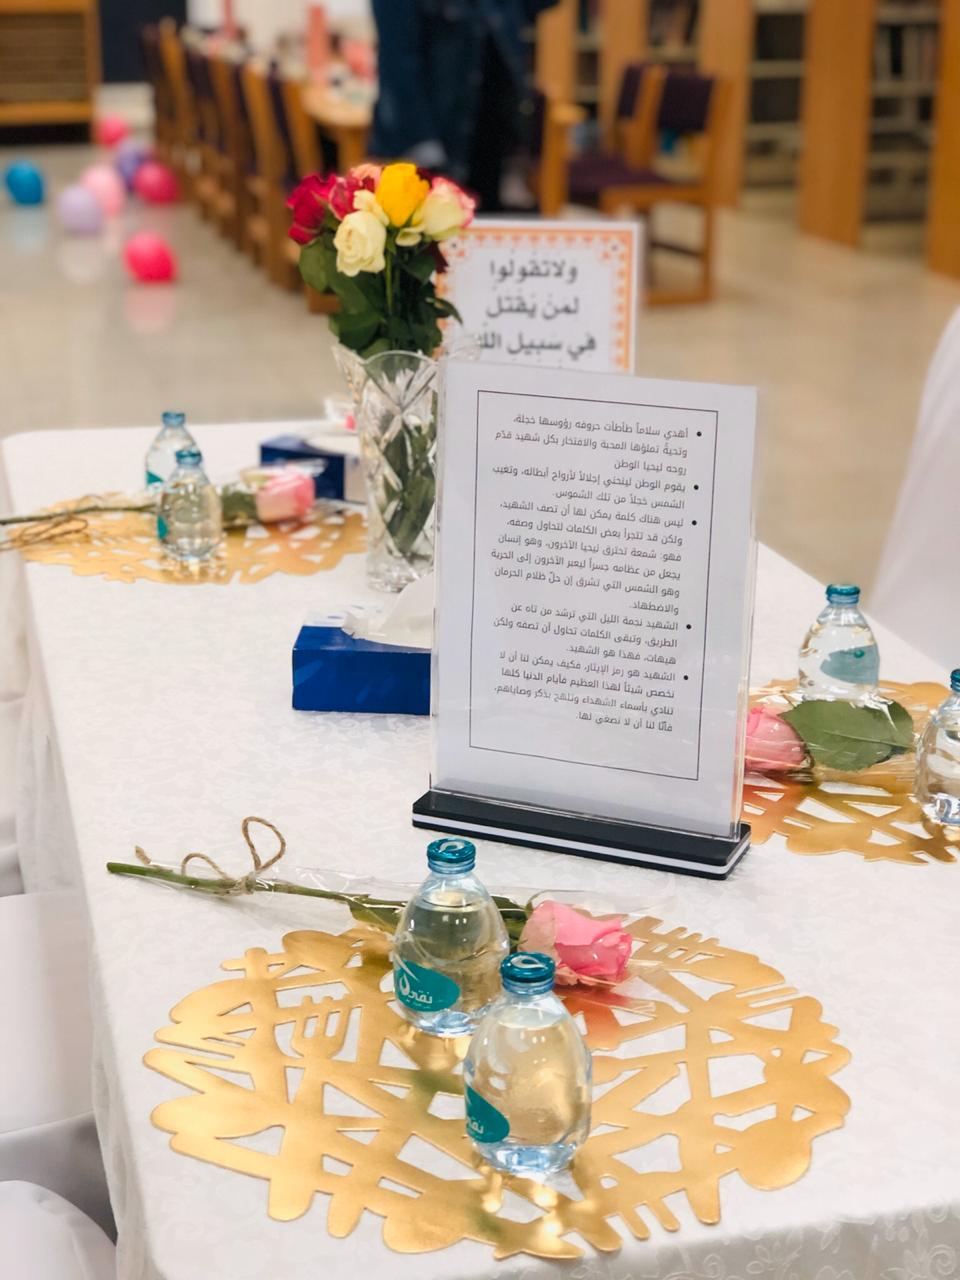 وَلاتَقُولُوا
لمَنْ يُقْتَلُ
فِي سَبِيلِ اللَّهِ
• أهدي سلاماً طأطأت حروفه رؤوسها خجلة،
وتحيةً تملؤها المحبة والافتخار بكل شهيد قدّم
روحه ليحيا الوطن
• يقوم الوطن لينحني إجلالاً لأرواح أبطاله، وتغيب
الشمس خجلاً من تلك الشموس.
• ليس هناك كلمة يمكن لها أن تصف الشهيد،
ولكن قد تتجرأ بعض الكلمات لتحاول وصفه،
فهو: شمعة تحترق ليحيا الآخرون، وهو إنسان
يجعل من عظامه جسراً ليعبر الآخرون إلى الحرية
وهو الشمس التي تشرق إن حلّ ظلام الحرمان
والاضطهاد.
• الشهيد نجمة الليل التي ترشد من تاه عن
الطريق، وتبقى الكلمات تحاول أن تصفه ولكن
هيهات، فهذا هو الشهيد.
• الشهيد هو رمز الإيثار، فكيف يمكن لنا أن لا
نخصص شيئاً لهذا العظيم فأيام الدنيا كلها
تنادي بأسماء الشهداء وتلهج بذكر وصاياهم،
فأنّا لنا أن لا نصغي لها.
نقي
نقي